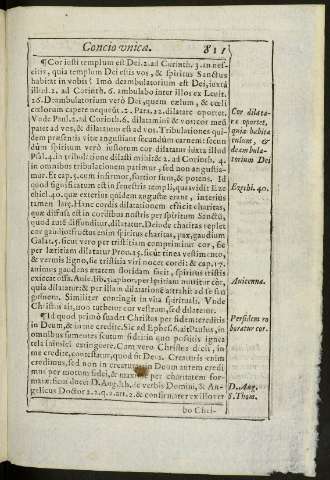 Concio vnica. 811
¶Cor iusti templum est Dei. 2. ad Corinth. 3. an nes-
citis, quia templum Dei estis vos, & Spiritus Sanctus
habitat in vobis? Imò deambulatorium est Dei, iuxtà
illud. 2. ad Corinth. 6. ambulabo inter illos ex Leuit.
26. Deambulatorium verò Dei, quem cælum, & cœli
cœlorum capere nequeūt. 2. Para. 22. dilatare oportet.
Vnde Paul. 2. ad Corinth. 6. dilatamini & vos: cor meū
patet ad vos, & dilatatum est ad vos. Tribulationes qui-
dem præsentis vitæ angustant secundum carnem: secun
dùm spiritum verò iustorum cor dilatant iuxta illud
Psal. 4. in tribulatione dilatasti mihi: & 2. ad Corinth. 4.
in omnibus tribulationem patimur, sed non angustia-
mur. Et cap. 12. cum infirmor, fortior sum, & potens. Id
quod significatum est in fenestris templi, quas vidit Eze
chiel. 40. quæ exterius quidem angustæ erant, interius
tamen largæ. Hanc cordis dilatationem efficit charitas,
quæ diffusa est in cordibus nostris per spiritum Sanctū,
quod zatè diffunditur, dilatatur. Deinde charitas replet
cor gaudio; fructus enim spiritus charitas, pax, gaudium
Galat. 5. sicut vero per tristitiam comprimitur cor, sic
per lætitiam dilatatur Prou. 25. sicut tinea vestimento,
& vermis ligno, sic tristitia viri nocet cordi: & cap. 17.
animus gaudens ætatem floridam facit, spiritus tristis
exiccat ossa.
generi. Similiter contingit in vita spirituali. Vnde
Christus ait, non turbetur cor vestrum, sed dilatetur.
¶Id quod primò suadet Christus per fidem: creditis
in Deum, & in me credite. Sic ad Ephes. 6. ait Paulus, in
omnibus sumentes scutum fidei: in quo possitis ignea
tela inimici extinguere. Cum vero Christus dicit, in
me credite, contestatur, quod sit Deus. Creaturis enim
credimus, sed non in creaturas: in Deum autem credi
mus per motum fidei, & maximè per charitatem for-
matæ: hoc docet D. Aug. lib. de verbis Domini, & An-
gelicus Doctor 2. 2. q. 2. art. 2. & confirmatur ex illo ver
bo Chri-
Cor dilata-
re oportet,
quia habita
culum, &
deambula-
torium Dei
Ezechi. 40.
Auicenna.
Per fidem ro
boratur cor.
D. Aug.
S. Thom.